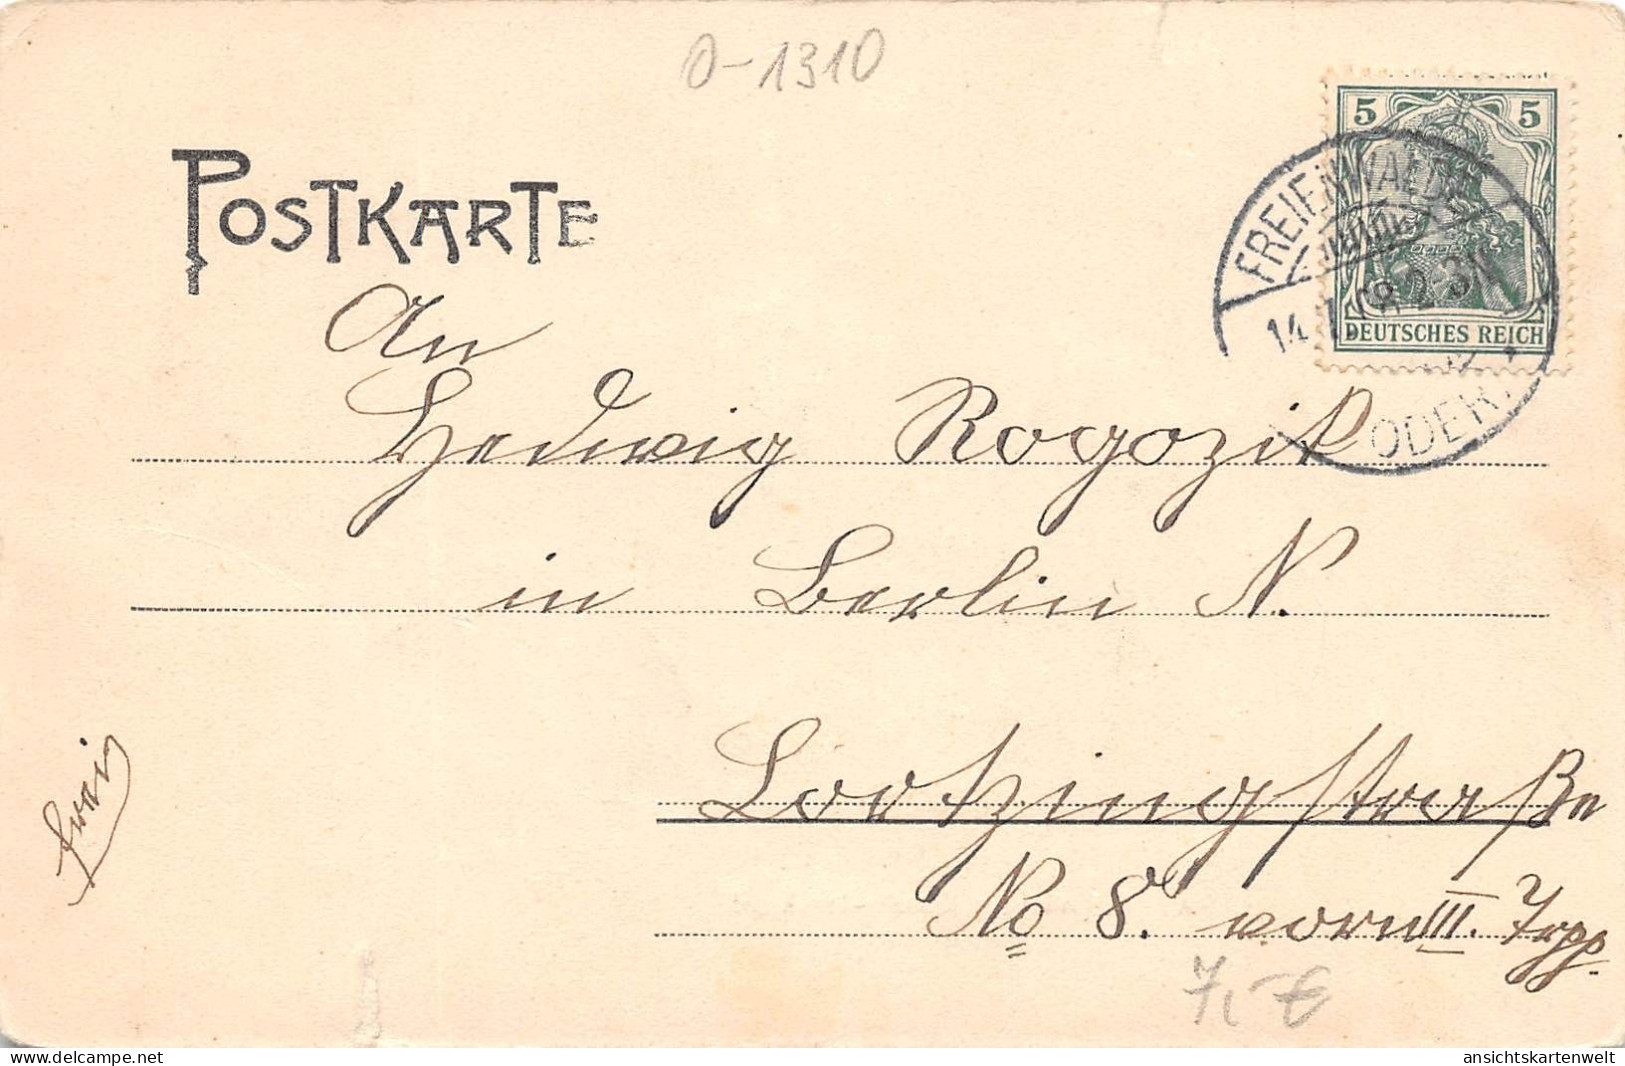 0-1310
POSTKARTE
5 5
DEUTSCHES REICH
FREIENWALDE
14. 2-3N
ODER
An
Hedwig Rogozik
in Berlin N.
Lortzingstraße
No 8. vorn III. Trpp.
frei
7,-€
delcampe.net
ansichtskartenwelt